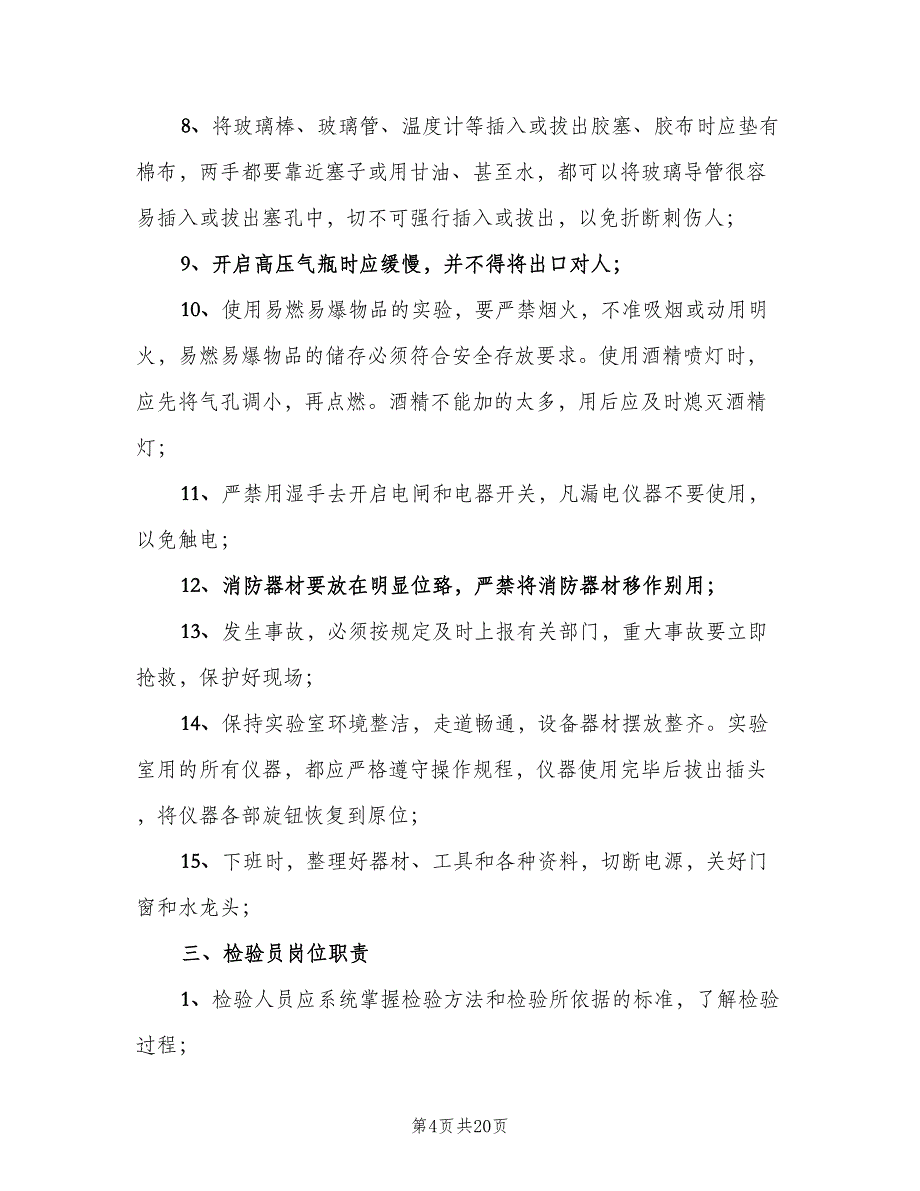 8、将玻璃棒、玻璃管、温度计等插入或拔出胶塞、胶布时应垫有
棉布，两手都要靠近塞子或用甘油、甚至水，都可以将玻璃导管很容
易插入或拔出塞孔中，切不可强行插入或拔出，以免折断刺伤人；
9、开启高压气瓶时应缓慢，并不得将出口对人；
10、使用易燃易爆物品的实验，要严禁烟火，不准吸烟或动用明
火，易燃易爆物品的储存必须符合安全存放要求。使用酒精喷灯时，
应先将气孔调小，再点燃。酒精不能加的太多，用后应及时熄灭酒精
灯；
11、严禁用湿手去开启电闸和电器开关，凡漏电仪器不要使用，
以免触电；
12、消防器材要放在明显位臵，严禁将消防器材移作别用；
13、发生事故，必须按规定及时上报有关部门，重大事故要立即
抢救，保护好现场；
14、保持实验室环境整洁，走道畅通，设备器材摆放整齐。实验
室用的所有仪器，都应严格遵守操作规程，仪器使用完毕后拔出插头
，将仪器各部旋钮恢复到原位；
15、下班时，整理好器材、工具和各种资料，切断电源，关好门
窗和水龙头；
三、检验员岗位职责
1、检验人员应系统掌握检验方法和检验所依据的标准，了解检验
过程；
第4页共20页